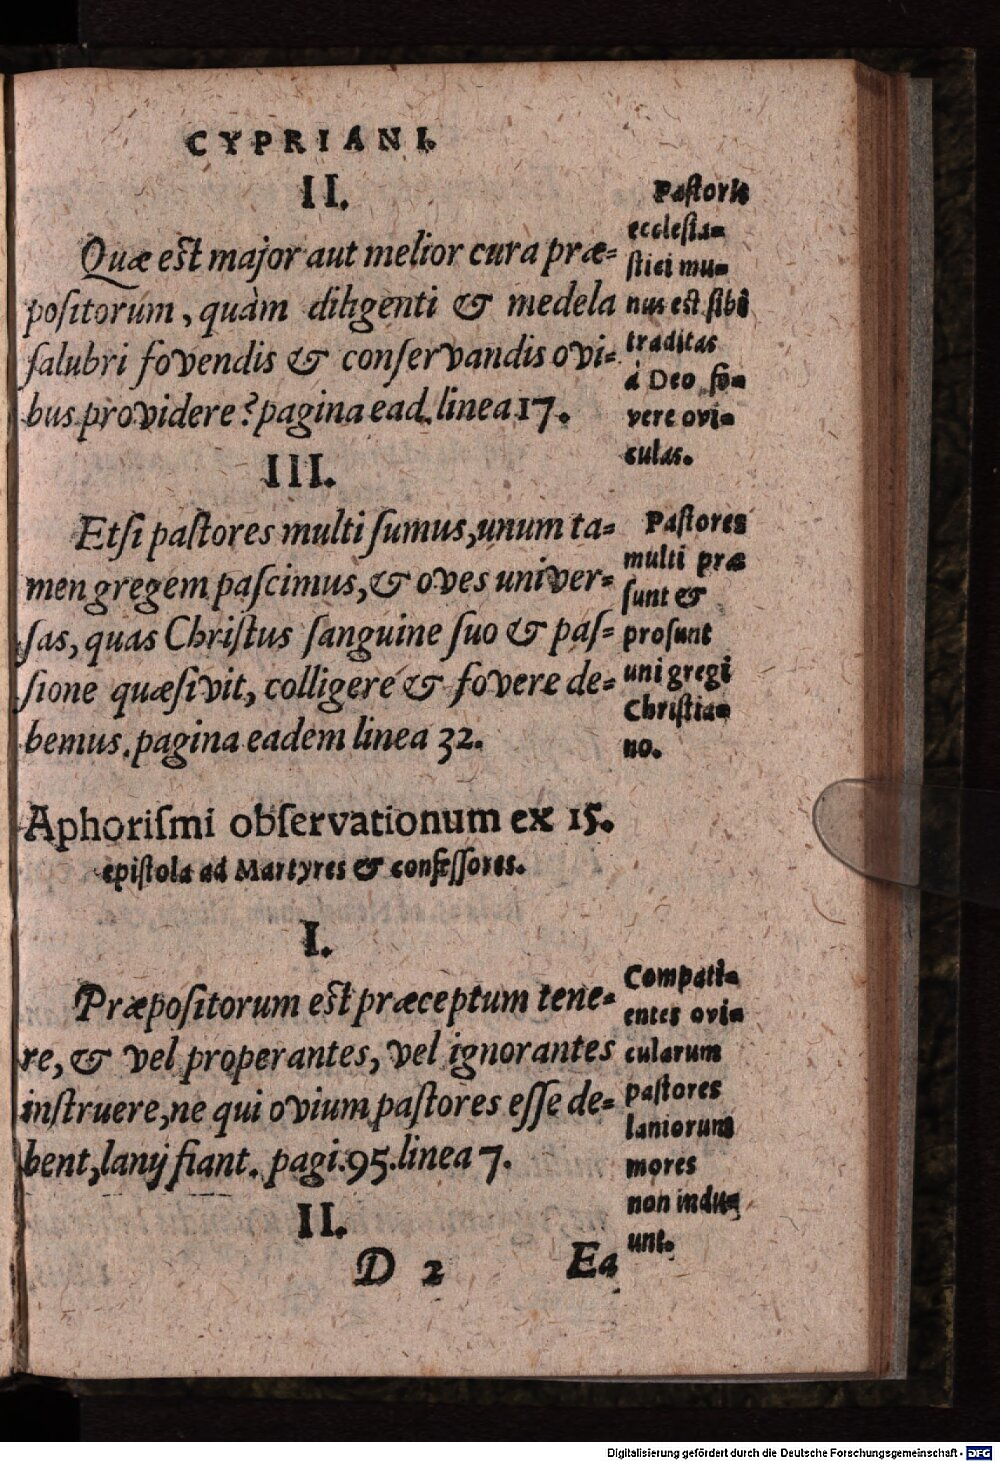 CYPRIANI.
II.
Quæ est major aut melior cura præ=
poſitorum, quàm diligenti & medela
ſalubri fovendis & conſervandis ovi=
bus providere? pagina ead. linea 17.
Paſtoris
eccleſia=
ſtici mu=
nus est ſibi
traditas
à Deo fo=
vere ovi=
culas.
III.
Etſi paſtores multi ſumus, unum ta=
men gregem paſcimus, & oves univer=
ſas, quas Chriſtus ſanguine ſuo & paſ=
ſione quæſivit, colligere & fovere de=
bemus. pagina eadem linea 32.
Paſtores
multi præ
ſunt &
proſunt
uni gregi
Chriſtia=
no.
Aphoriſmi obſervationum ex 15.
epiſtola ad Martyres & confeſſores.
I.
Præpoſitorum est præceptum tene=
re, & vel properantes, vel ignorantes
inſtruere, ne qui ovium paſtores eſſe de=
bent, lanij fiant. pagi. 95. linea 7.
Compati=
entes ovi=
cularum
paſtores
laniorum
mores
non indu=
unt.
II.
D 2 Ea
Digitalisierung gefördert durch die Deutsche Forschungsgemeinschaft - DFG